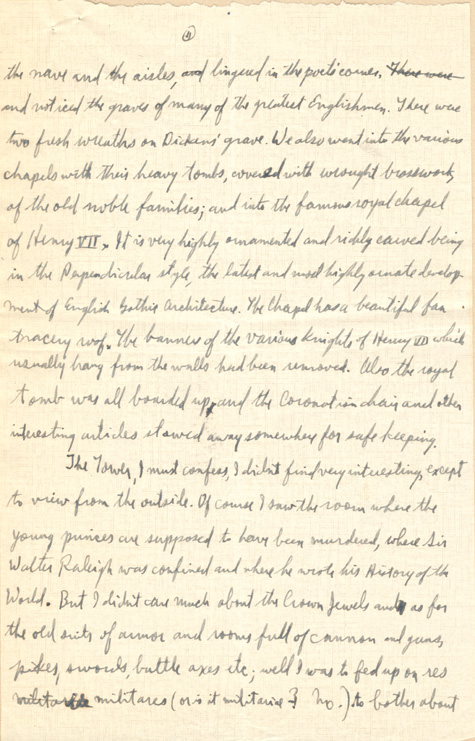 4
the nave and the aisles, and lingered in the poets corner, There were
and noticed the graves of many of the greatest Englishmen. There were
two fresh wreaths on Dickens' grave. We also went into the various
chapels with their heavy tombs, covered with wrought brasswork,
of the old noble families; and into the famous royal chapel
of Henry VII. It is very highly ornamented and richly carved being
in the Perpendicular style, the latest and most highly ornate develop-
ment of English Gothic Architecture. The Chapel has a beautiful fan
tracery roof. The banners of the various Knights of Henry VII which
usually hang from the walls had been removed. Also the royal
tomb was all boarded up, and the Coronation chair and other
interesting articles stowed away somewhere for safe keeping.
The Tower, I must confess, I didn't find very interesting, except
to view from the outside. Of course I saw the room where the
young princes are supposed to have been murdered, where Sir
Walter Raleigh was confined and where he wrote his History of the
World. But I didn't care much about the Crown Jewels and as for
the old suits of armor and rooms full of cannon and guns,
pikes, swords, battle axes etc; well I was to fed up on res
militares (or is it militariae? No.) to bother about